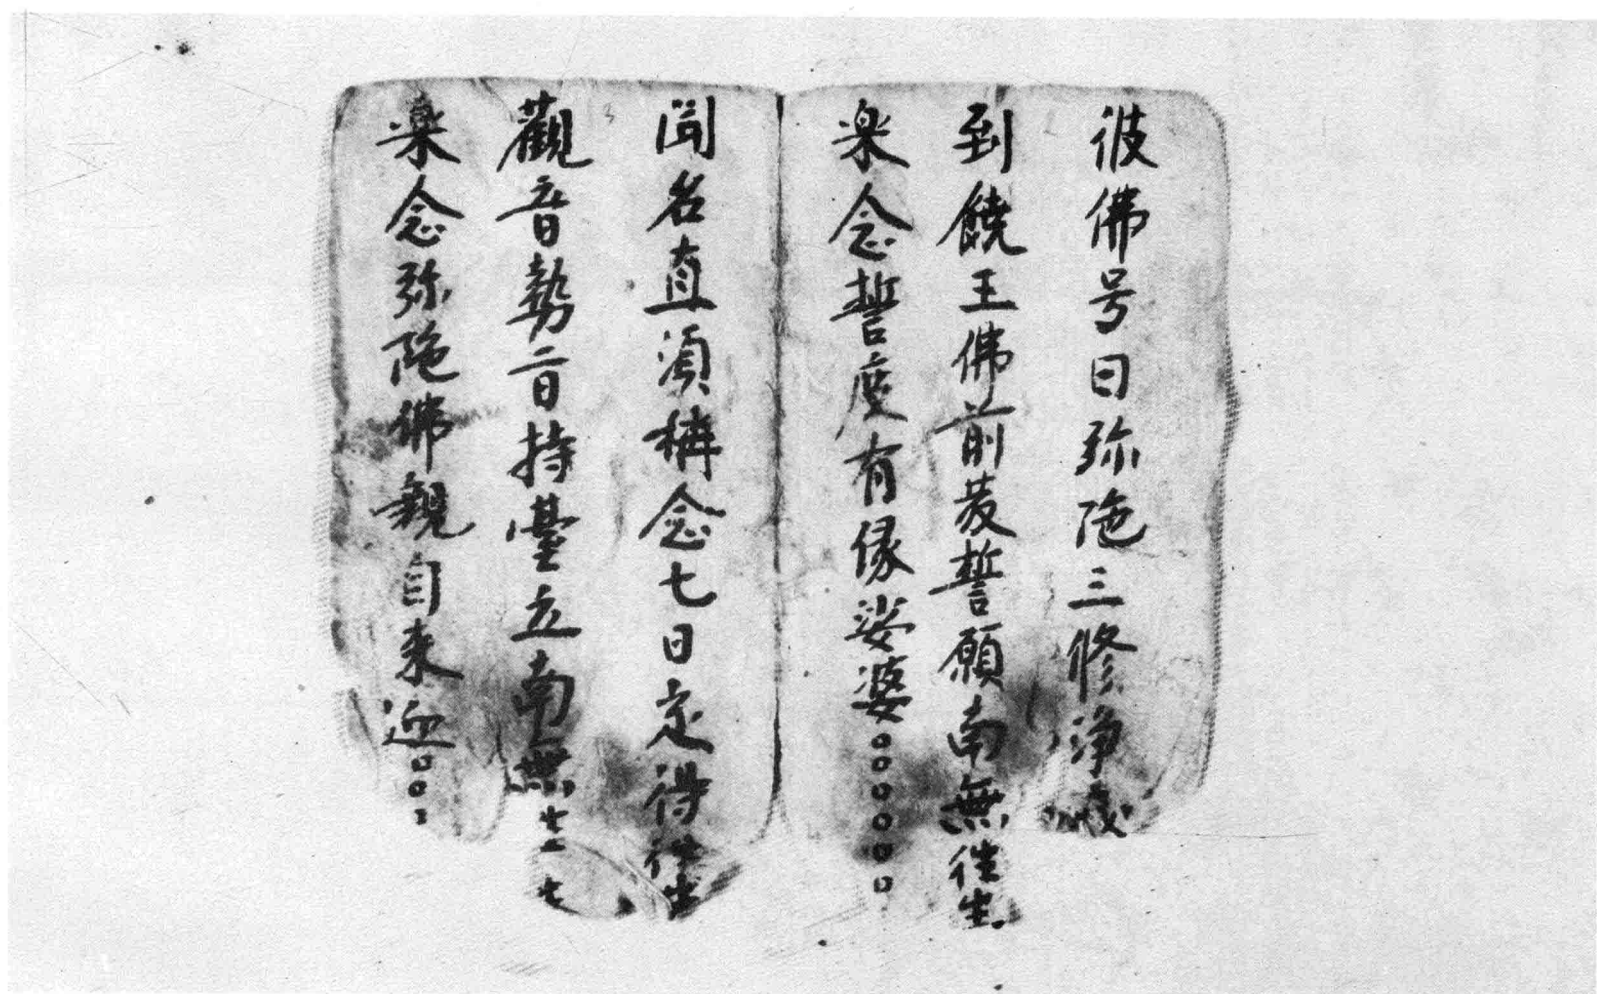 彼佛号曰弥陁三修淨戒
到饒王佛前發誓願南無往生
楽念誓度有縁娑婆
聞名直須稱念七日定得往生
觀音勢旨持臺立南無
楽念弥陁佛親自来迎